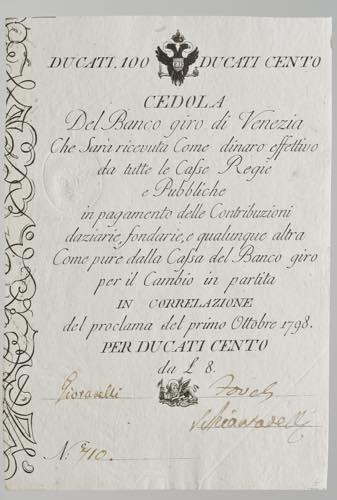 DUCATI. 100 DUCATI CENTO
CEDOLA
Del Banco giro di Venezia
Che Sarà ricevuta Come dinaro effettivo
da tutte le Casse Regie
e Pubbliche
in pagamento delle Contribuzioni
daziarie, fondarie, e qualunque altra
Come pure dalla Cassa del Banco giro
per il Cambio in partita
IN CORRELAZIONE
del proclama del primo Ottobre 1798.
PER DUCATI CENTO
da £ 8.
Giovanelli
N.º 710.